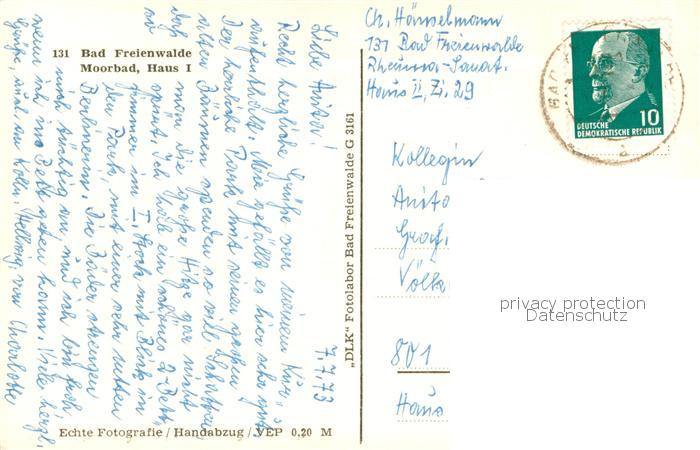 131 Bad Freienwalde
Moorbad, Haus I
7.7.73
Liebe Anita!
Recht herzliche Grüße von meinem Kur-
aufenthalt. Mir gefällt es hier sehr gut.
Der herrliche Park mit seinen großen
alten Bäumen spenden so viel Schatten,
daß man die große Hitze gar nicht
so spürt. Ich habe ein schönes 2-Bett-
zimmer im I. Stock mit Blick in
den Park, mit einer sehr netten
Berlinerin. Die Bäder strengen
mich tüchtig an, und ich bin froh,
wenn ich ins Bett gehen kann. Viele herzl.
Grüße, auch an Koln. Hellwig, von Charlotte
Echte Fotografie / Handabzug / VEP 0,20 M
„DLK“ Fotolabor Bad Freienwalde G 3161
Ch. Hänselmann
131 Bad Freienwalde
Rheuma-Sanat.
Haus II, Zi. 29
10
DEUTSCHE
DEMOKRATISCHE REPUBLIK
BAD
Kollegin
Anita
Graf,
Völk
801
Haus
privacy protection
Datenschutz